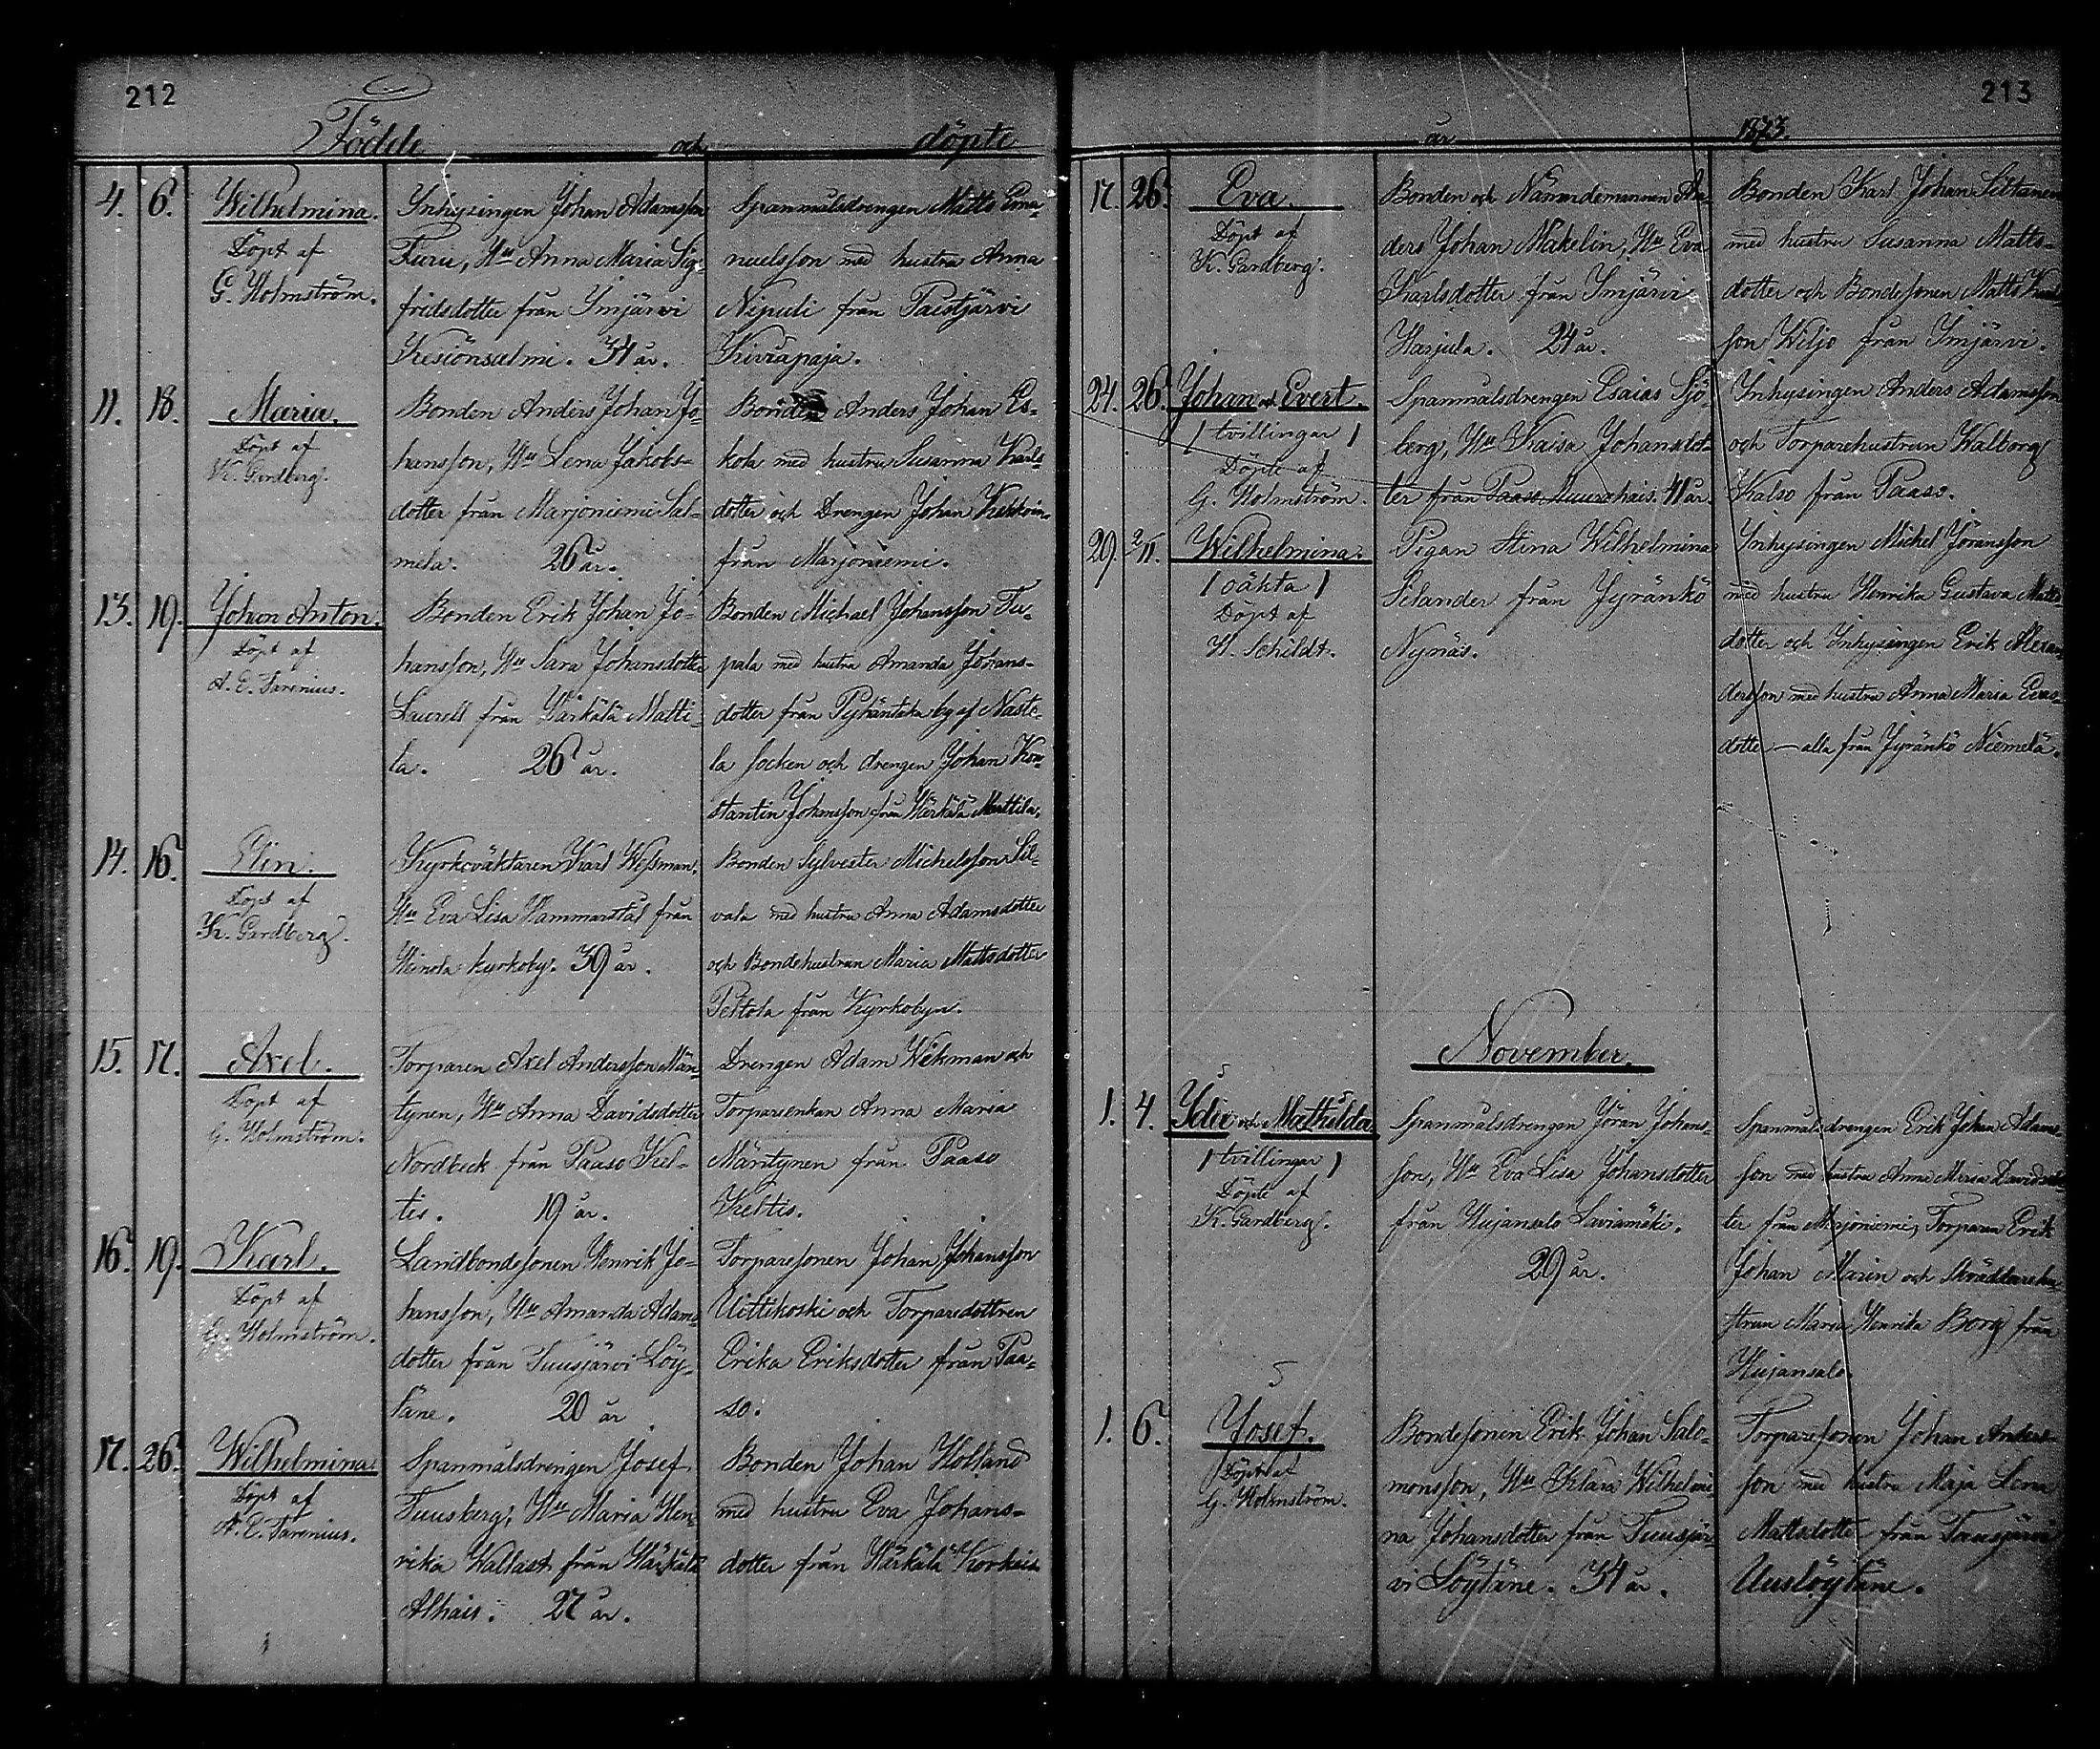 212
Födde och döpte
4. 6. Wilhelmina.
Döpt af
G. Holmström.
Inhysingen Johan Adamsson
Furu, Hu Anna Maria Sig-
fridsdotter från Imjärvi
Kesiönsalmi. 34 år.
Spanmålsdrengen Matts Ema-
nuelsson med hustru Anna
Nipuli från Paistjärvi
Kiviapaja.
11. 18. Maria.
Döpt af
K. Gardberg.
Bonden Anders Johan Jo-
hansson, Hu Lena Jakobs-
dotter från Marjoniemi Sal-
mela. 26 år.
Bonden Anders Johan Es-
kola med hustru Susanna Karls-
dotter och Drengen Johan
från Marjoniemi.
13. 19. Johan Anton.
Döpt af
A. E. Farenius.
Bonden Erik Johan Jo-
hansson, Hu Sara Johansdotter
Laurell från Härkälä Matti-
la. 26 år.
Bonden Michael Johansson Tu-
pala med hustru Amanda Johans-
dotter från Pyhäntaka by af Nasto-
la socken och drengen Johan Kon-
stantin Johansson från Härkälä Mattila.
14. 16. Elin.
Döpt af
K. Gardberg.
Kyrkoväktaren Karl Wessman,
Hu Eva Lisa Hammarstål från
Heinola kyrkoby. 39 år.
Bonden Sylvester Michelsson Sil-
vala med hustru Anna Adamsdotter
och Bondehustrun Maria Mattsdotter
Peltola från Kyrkobyn.
15. 17. Axel.
Döpt af
G. Holmström.
Torparen Axel Andersson Män-
tynen, Hu Anna Davidsdotter
Nordbeck från Paaso Kel-
tis. 19 år.
Drengen Adam Wekman och
Torpareenkan Anna Maria
Mäntynen från Paaso
Keltis.
16. 19. Karl.
Döpt af
G. Holmström.
Landbondesonen Henrik Jo-
hansson, Hu Amanda Adams-
dotter från Tuusjärvi Löy-
täne. 20 år
Torparesonen Johan Johansson
Uittikoski och Torparedottren
Erika Eriksdotter från Paa-
so.
17. 26. Wilhelmina
Döpt af
A. E. Farenius.
Spanmålsdrengen Josef
Tuusberg, Hu Maria Hen-
rika Wallast från Härkälä
Alhais. 27 år.
Bonden Johan Holland
med hustru Eva Johans-
dotter från Härkälä Korkeis.
213
år 1873.
17. 26. Eva.
Döpt af
K. Gardberg.
Bonden och Nämndemannen An-
ders Johan Makelin, Hu Eva
Karlsdotter från Imjärvi
Harjula. 24 år.
Bonden Karl Johan Siltanen
med hustru Susanna Matts-
dotter och Bondesonen Matts
son Wiljo från Imjärvi.
24. 26. Johan och Evert.
/ tvillingar /
Döpte af
G. Holmström.
Spanmålsdrengen Esaias Sjö-
berg, Hu Kaisa Johansdot-
ter från Paaso Muurahais. 41 år.
Inhysingen Anders Adamsson
och Torparehustrun Walborg
Kalso från Paaso.
29. 2/11. Wilhelmina.
/ oäkta /
Döpt af
H. Schildt.
Pigan Stina Wilhelmina
Selander från Jyränkö
Nynäs.
Inhysingen Michel Jöransson
med hustru Henrika Gustava Matts-
dotter och Inhysingen Erik Alexan-
dersson med hustru Anna Maria Evas-
dotter - alla från Jyränkö Niemelä.
November.
1. 4. Idie och Mathilda
/ tvillingar /
Döpte af
K. Gardberg.
Spanmålsdrengen Jöran Johans-
son, Hu Eva Lisa Johansdotter
från Hujansalo Laviamäki.
29 år.
Spanmålsdrengen Erik Johan Adams-
son med hustru Anna Maria Davidsdot-
ter från Marjoniemi, Torparen Erik
Johan Marin och Skräddarehu-
strun Maria Henrika Borg från
Hujansalo.
1. 6. Josef.
Döpt af
G. Holmström.
Bondesonen Erik Johan Salo-
monsson, Hu Klara Wilhelmi-
na Johansdotter från Tuusjär-
vi Löytäne. 34 år.
Torparesonen Johan Anders-
son med hustru Maja Lena
Mattsdotter från Tuusjärvi
Uuslöytäne.